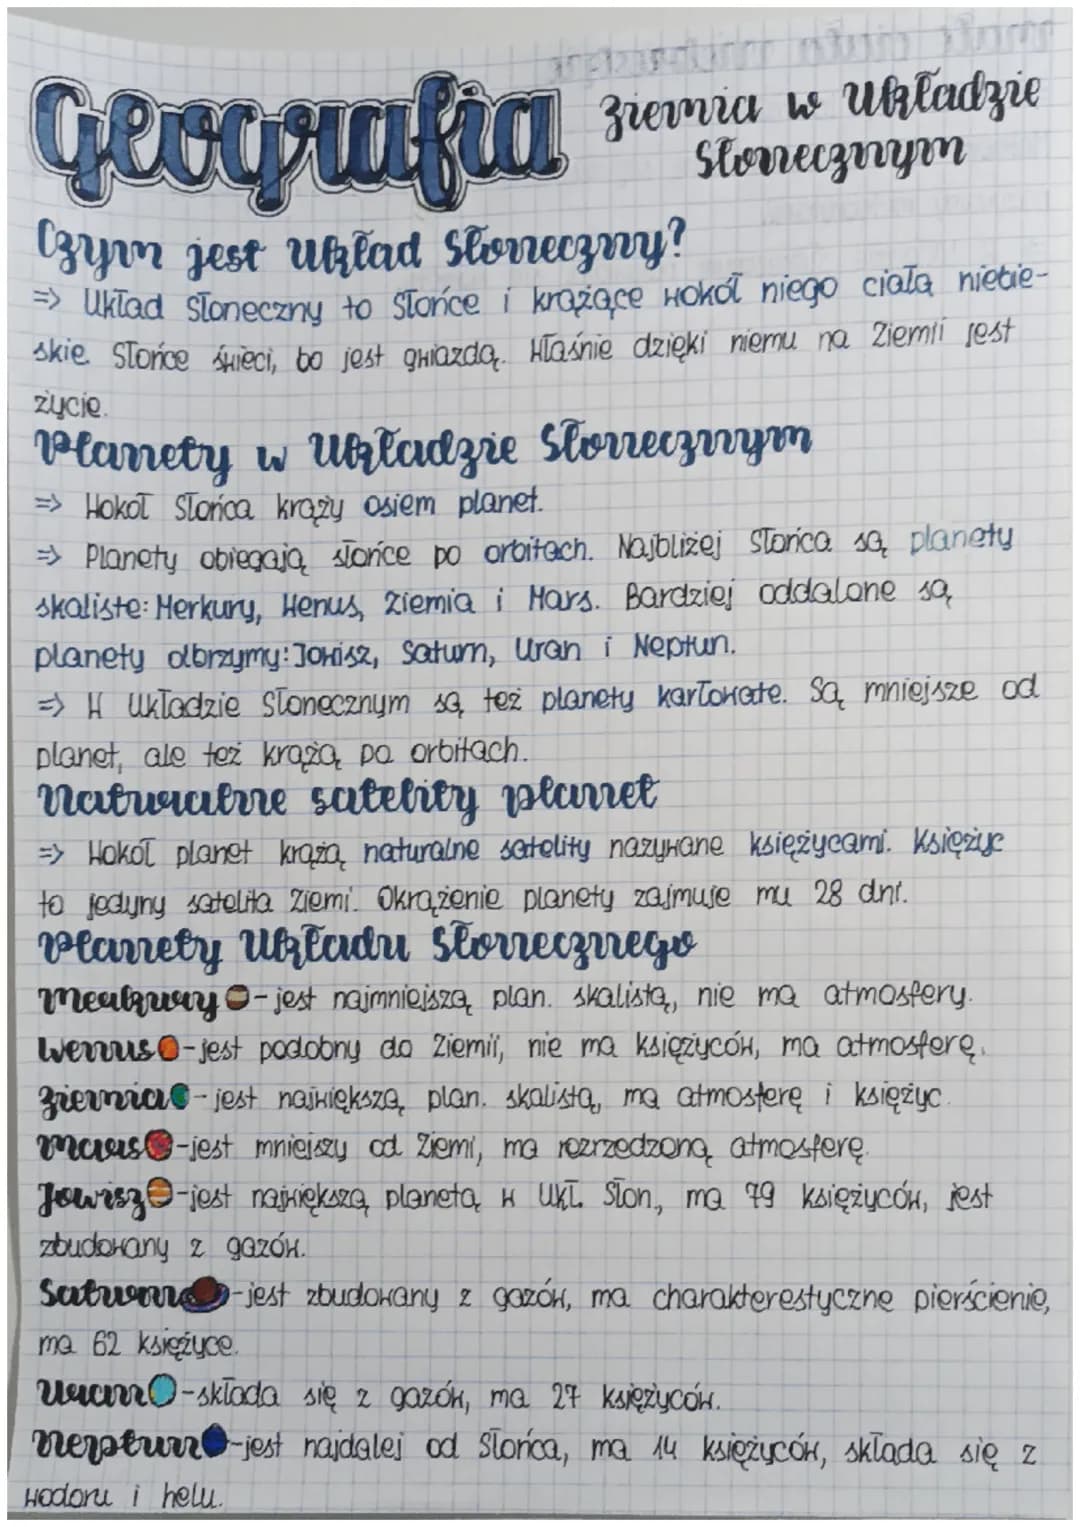 Geografia
Ziemia w Układzie
Słonecznym
Czym jest Układ Słoneczny?
=> Układ Słoneczny to Słońce i krążące wokół niego ciała niebie-
skie. Słońce świeci, bo jest gwiazdą. Właśnie dzięki niemu na Ziemii jest
życie.
Planety w Układzie Słonecznym
=> Wokół Słońca krąży osiem planet.
=> Planety obiegają słońce po orbitach. Najbliżej Słońca są planety
skaliste: Merkury, Wenus, Ziemia i Mars. Bardziej oddalone są
planety olbrzymy: Jowisz, Saturn, Uran i Neptun.
=> W Układzie Słonecznym są też planety karłowate. Są mniejsze od
planet, ale też krążą po orbitach.
Naturalne satelity planet
=> Wokół planet krążą naturalne satelity nazywane księżycami. Księżyc
to jedyny satelita Ziemi. Okrążenie planety zajmuje mu 28 dni.
Planety Układu Słonecznego
Merkury - jest najmniejszą plan. skalistą, nie ma atmosfery.
Wenus - jest podobny do Ziemii, nie ma księżyców, ma atmosferę.
Ziemia - jest największą plan. skalistą, ma atmosferę i księżyc.
Mars - jest mniejszy od Ziemi, ma rozrzedzoną atmosferę.
Jowisz - jest największą planetą w Ukł. Słon., ma 79 księżyców, jest
zbudowany z gazów.
Saturn - jest zbudowany z gazów, ma charakterestyczne pierścienie,
ma 62 księżyce.
Uran - składa się z gazów, ma 27 księżyców.
Neptun - jest najdalej od Słońca, ma 14 księżyców, składa się z
wodoru i helu.